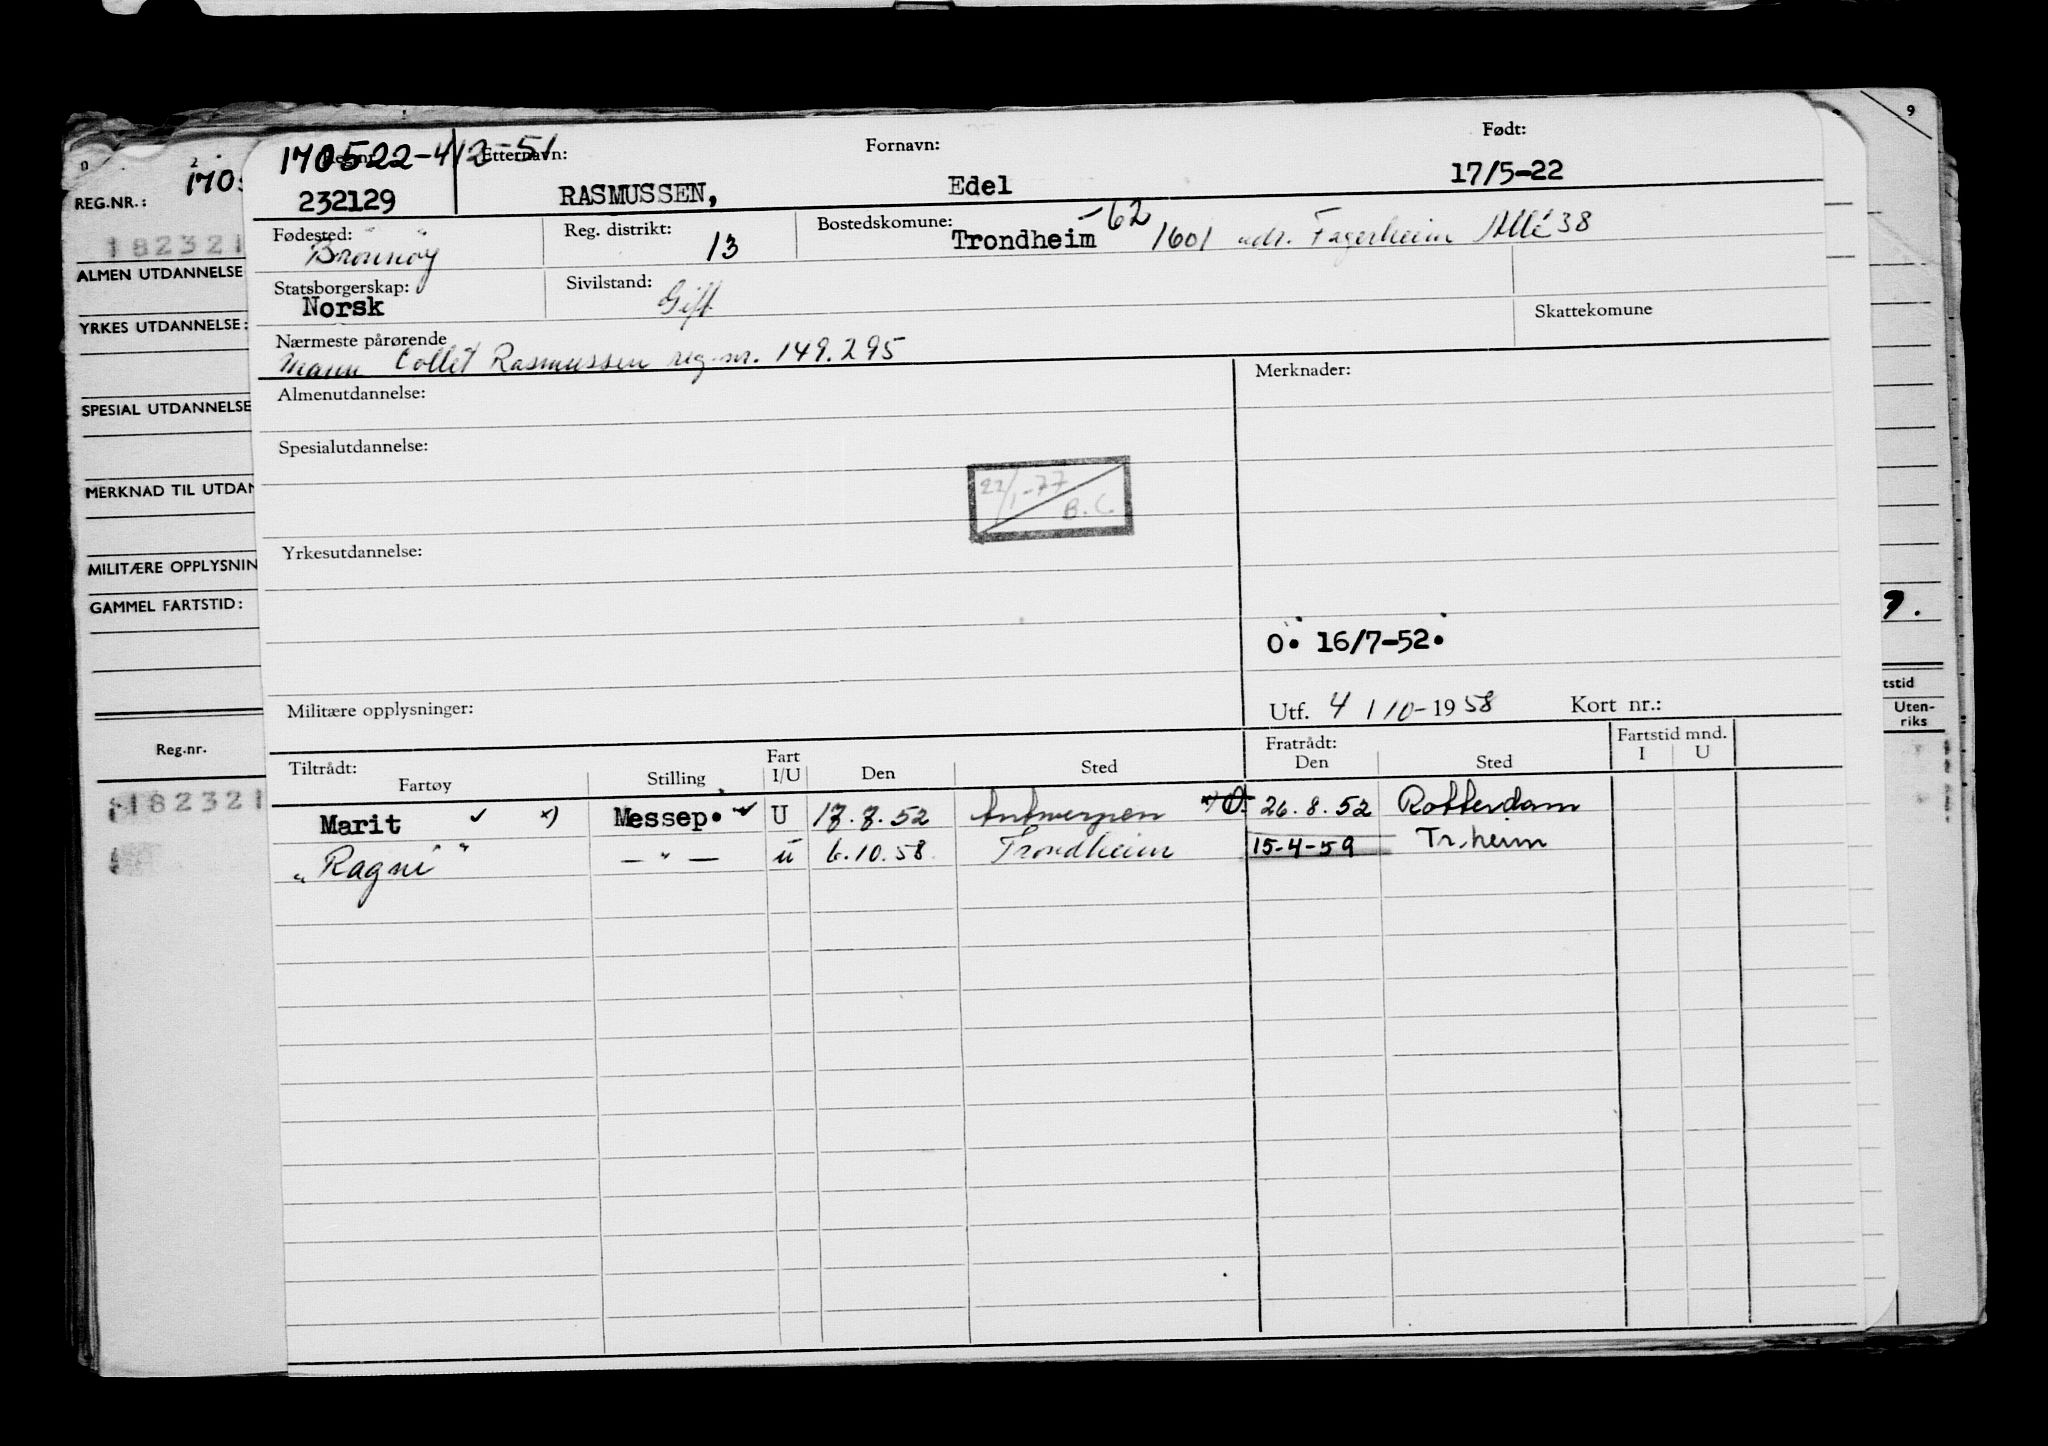 9
0
2
170522-412-51
Reg.nr.
Etternavn:
Fornavn:
Født:
232129
RASMUSSEN,
Edel
17/5-22
REG.NR.:
170
182321
Fødested:
Brönnöy
Reg. distrikt:
13
Bostedskomune:
Trondheim -62 1601 adr. Fagerheim Allé 38
ALMEN UTDANNELSE
Statsborgerskap:
Norsk
Sivilstand:
Gift
Skattekomune
YRKES UTDANNELSE:
Nærmeste pårørende
Mann Collet Rasmussen reg.nr. 149.295
SPESIAL UTDANNELSE
Almenutdannelse:
Merknader:
Spesialutdannelse:
22/1-77
B.C.
MERKNAD TIL UTDAN
Yrkesutdannelse:
MILITÆRE OPPLYSNIN
GAMMEL FARTSTID:
O. 16/7-52.
Militære opplysninger:
Utf. 4/10-1958
Kort nr.:
tstid
Uten-
riks
Reg.nr.
Tiltrådt:
Fartøy
Stilling
Fart
I/U
Den
Sted
Fratrådt:
Den
Sted
Fartstid mnd.
I
U
182321
Marit ✓ x) Messep. ✓ U 17.7.52 Antwerpen x) O. 26.8.52 Rotterdam
"Ragni" — " — u 6.10.58 Trondheim 15-4-59 Tr.heim